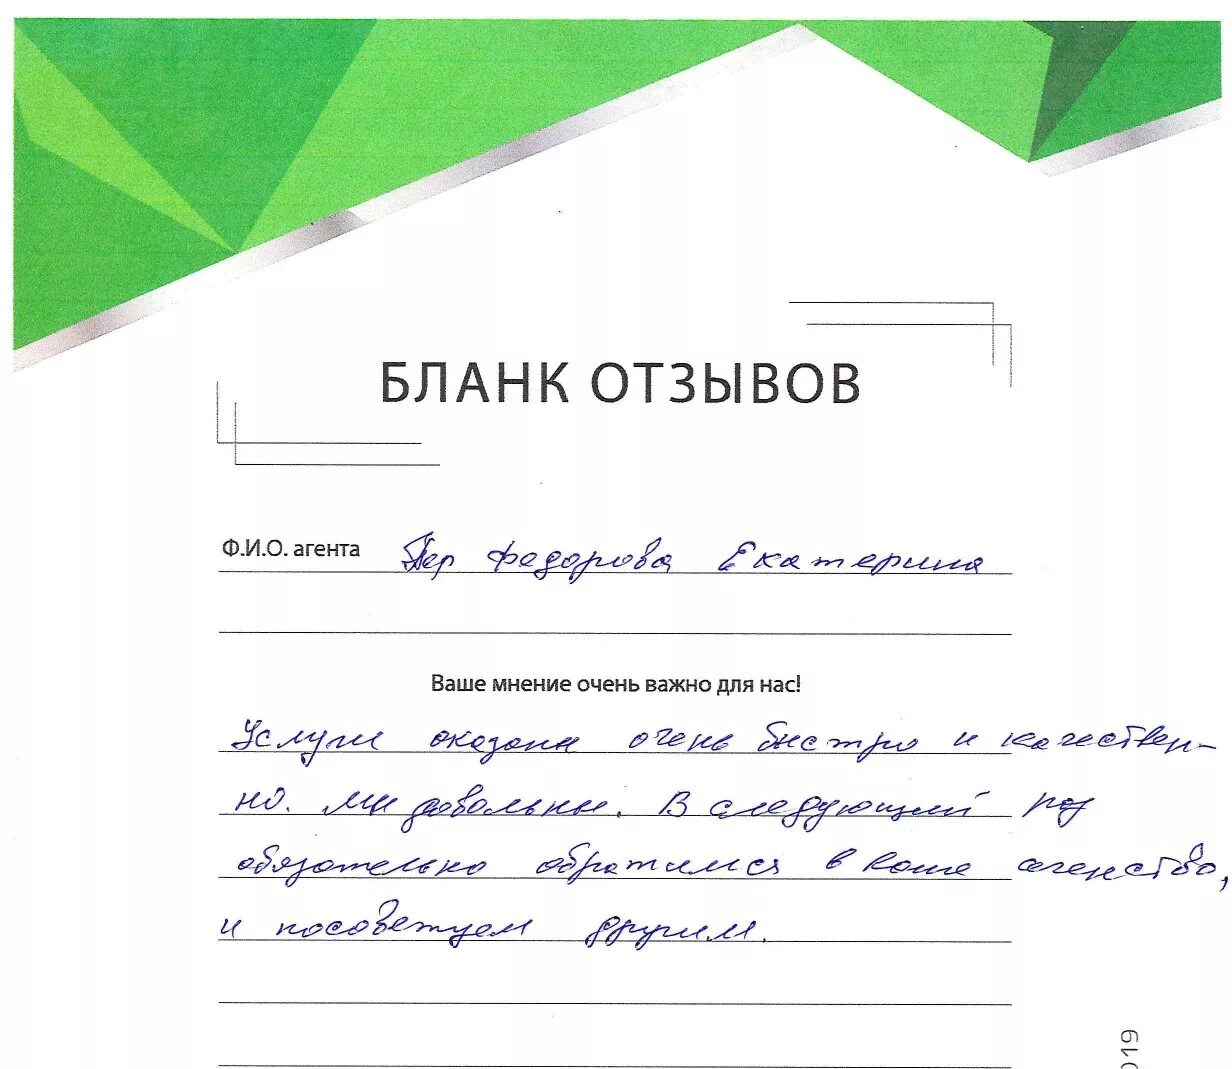 БЛАНК ОТЗЫВОВ
Ф.И.О. агента Тер Федорова Екатерина
Ваше мнение очень важно для нас!
Услуги оказаны очень быстро и качествен-
но. Мы довольны. В следующий раз
обязательно обратимся в ваше агенство,
и посоветуем другим.
019